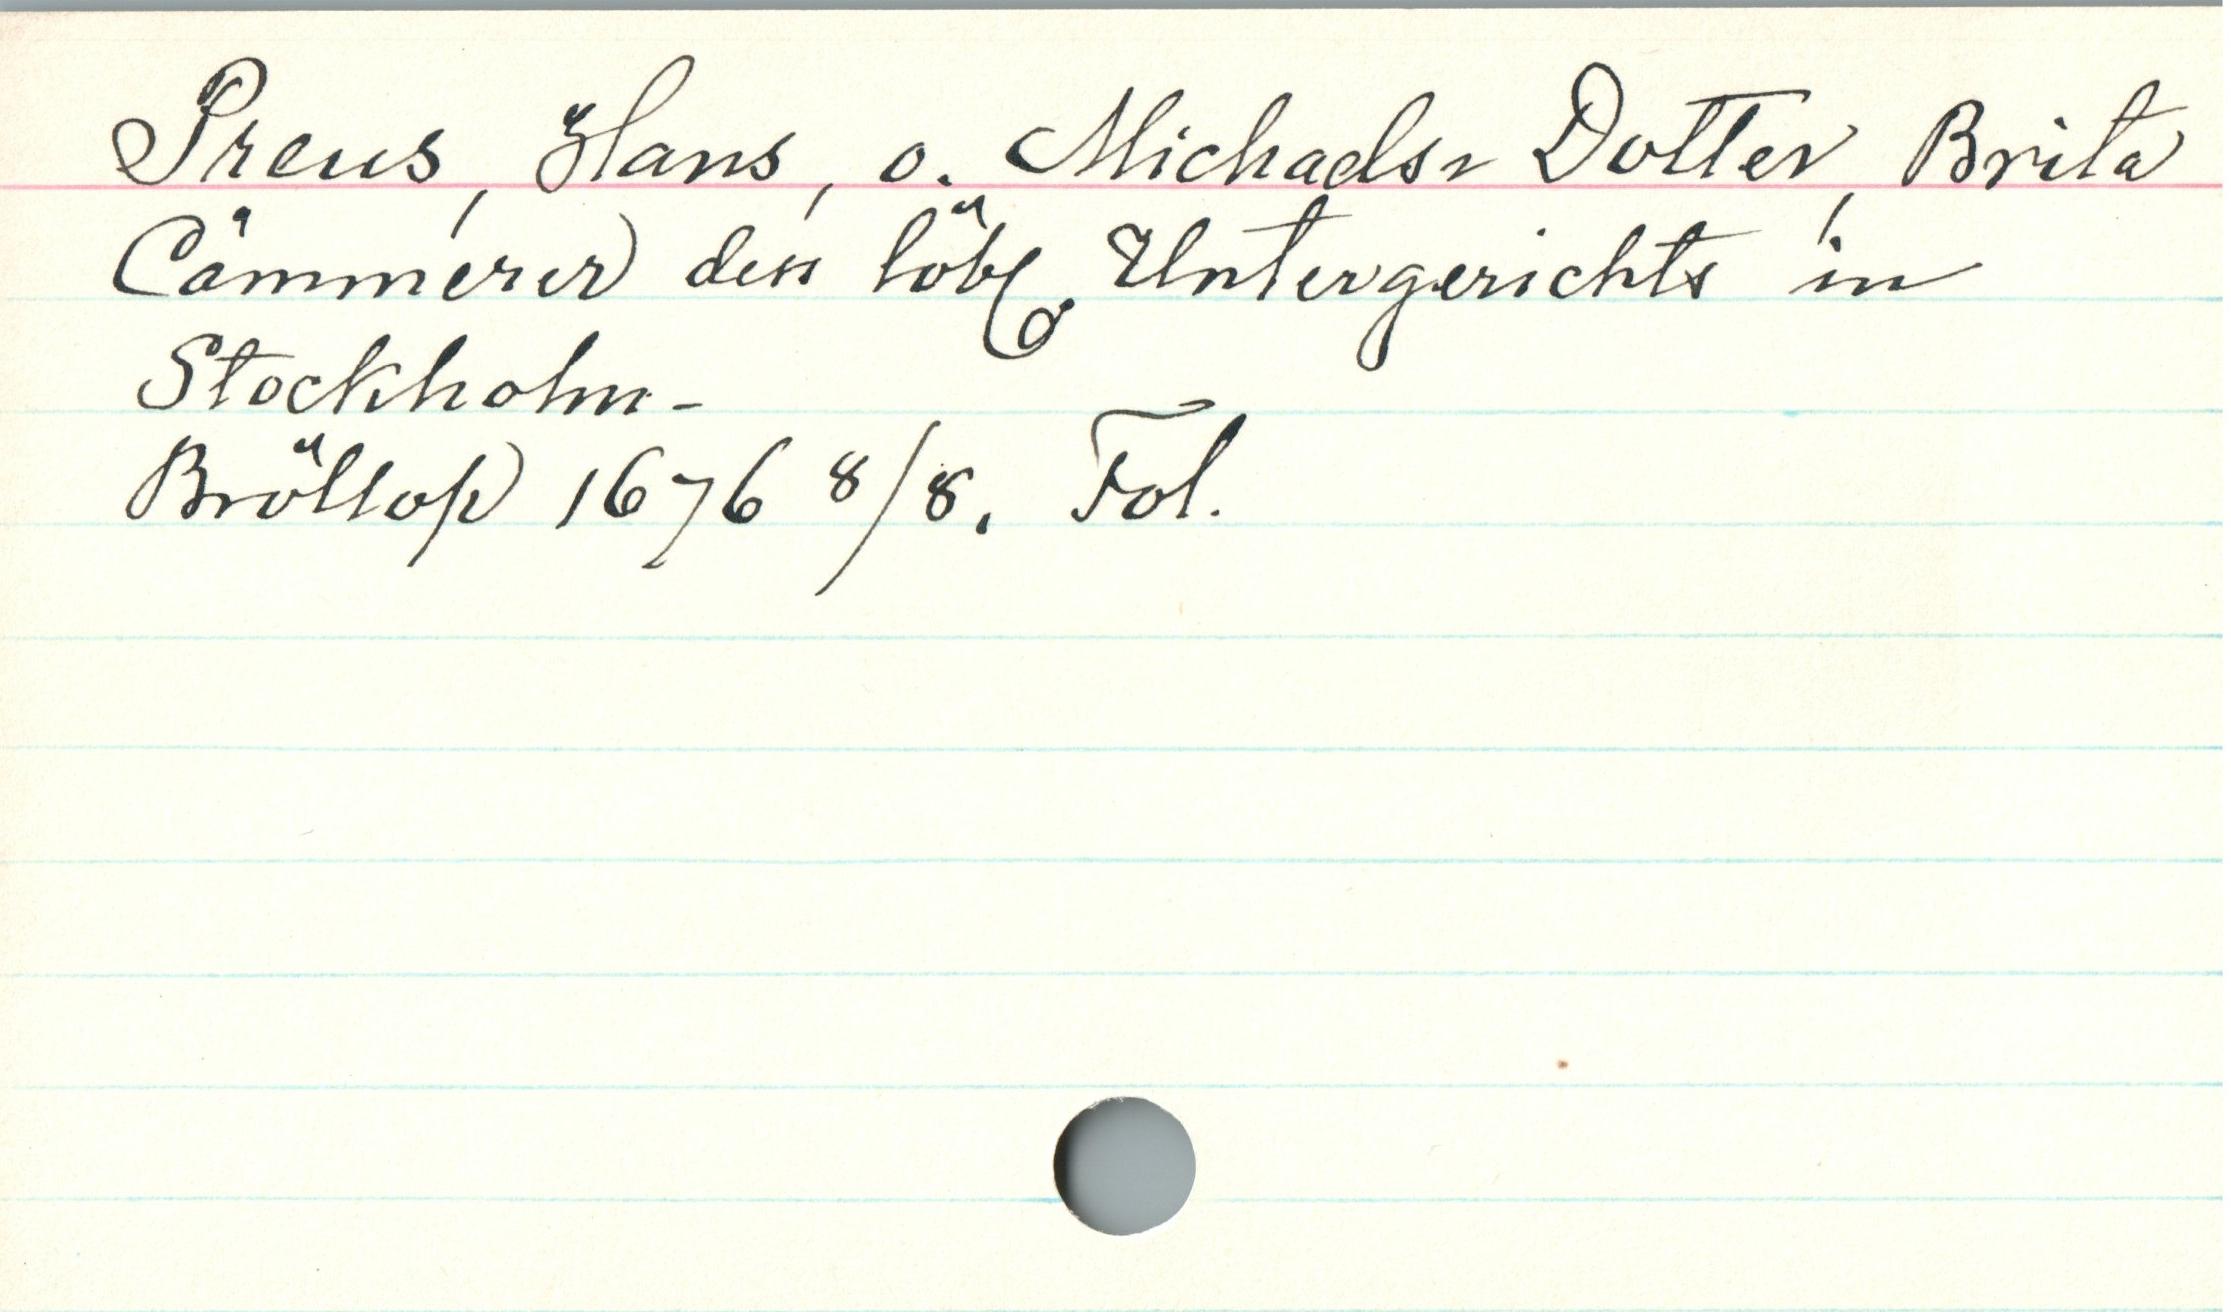 Preus, Hans, o. Michaels Dotter, Brita
Cämmerer des löbl. Untergerichts in
Stockholm-
Bröllop 1676 8/8. Fol.